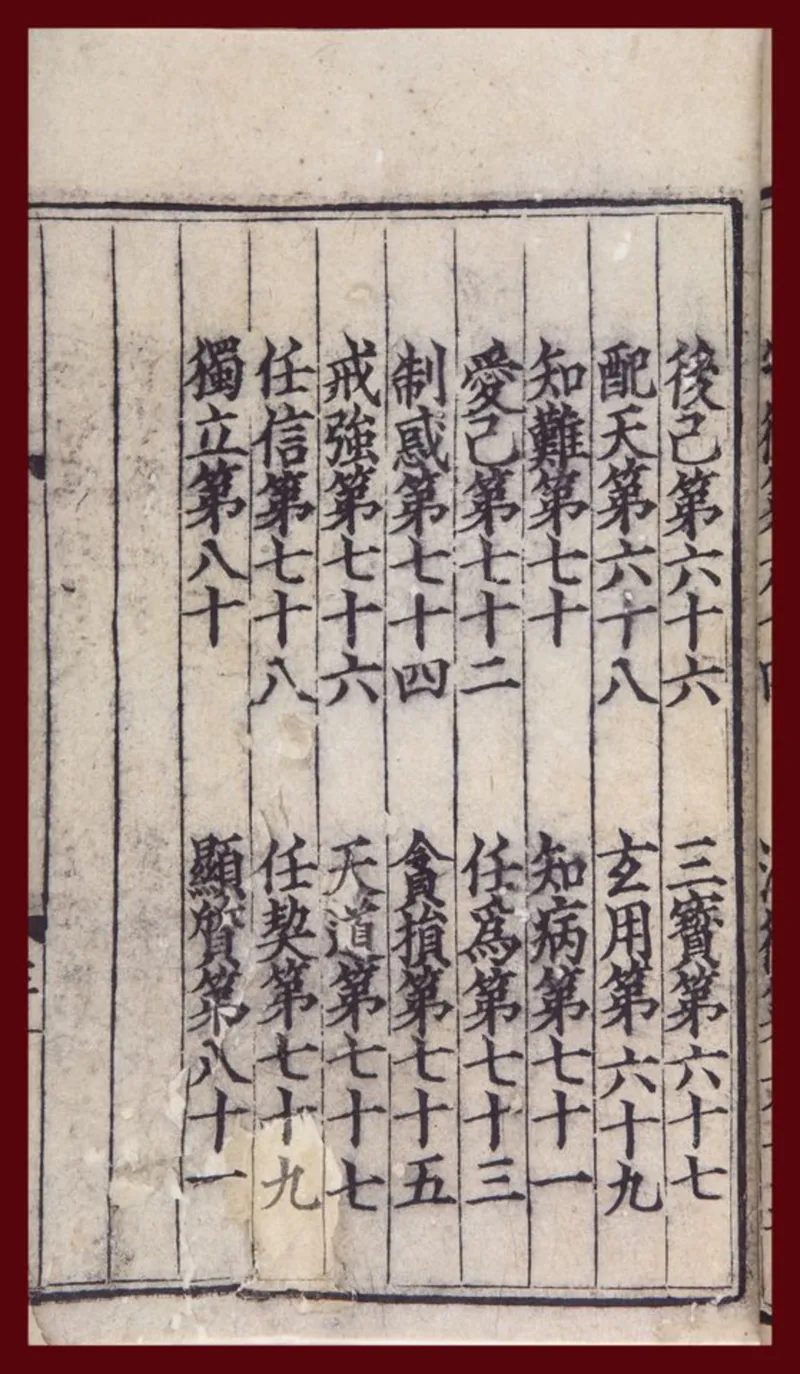 後己第六十六　三寶第六十七
配天第六十八　玄用第六十九
知難第七十　知病第七十一
愛己第七十二　任爲第七十三
制惑第七十四　貪損第七十五
戒強第七十六　天道第七十七
任信第七十八　任契第七十九
獨立第八十　顯質第八十一